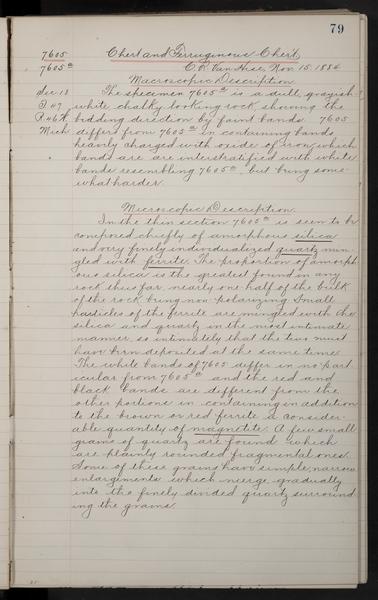 79
7605 Chert and Ferruginous Chert.
7605a C.R. Van Hise, Nov. 15, 1884
Macroscopic Description
Sec 13 The specimen 7605a is a dull, grayish
white chalky looking rock, showing the
bedding direction by faint bands. 7605
Mich differs from 7605a in containing bands
heavily charged with oxide of iron, which
bands are are interstratified with white
bands resembling 7605a, but being some-
what harder.
Microscopic Description.
In the thin section 7605a is seen to be
composed chiefly of amorphous silica
and very finely individualized quartz min-
gled with ferrite. The proportion of amorph-
ous silica is the greatest found in any
rock thus far nearly one half of the bulk
of the rock being non-polarizing. Small
particles of the ferrite are mingled with the
silica and quartz in the most intimate
manner, so intimately that the two must
have been deposited at the same time.
The white bands of 7605 differ in no part-
icular from 7605a and the red and
black bands are different from the
other portions in containing in addition
to the brown or red ferrite a consider-
able quantity of magnetite. A few small
grains of quartz are found which
are plainly rounded fragmental ones.
Some of these grains have simple, narrow
enlargements which merge gradually
into the finely divided quartz surround-
ing the grains.